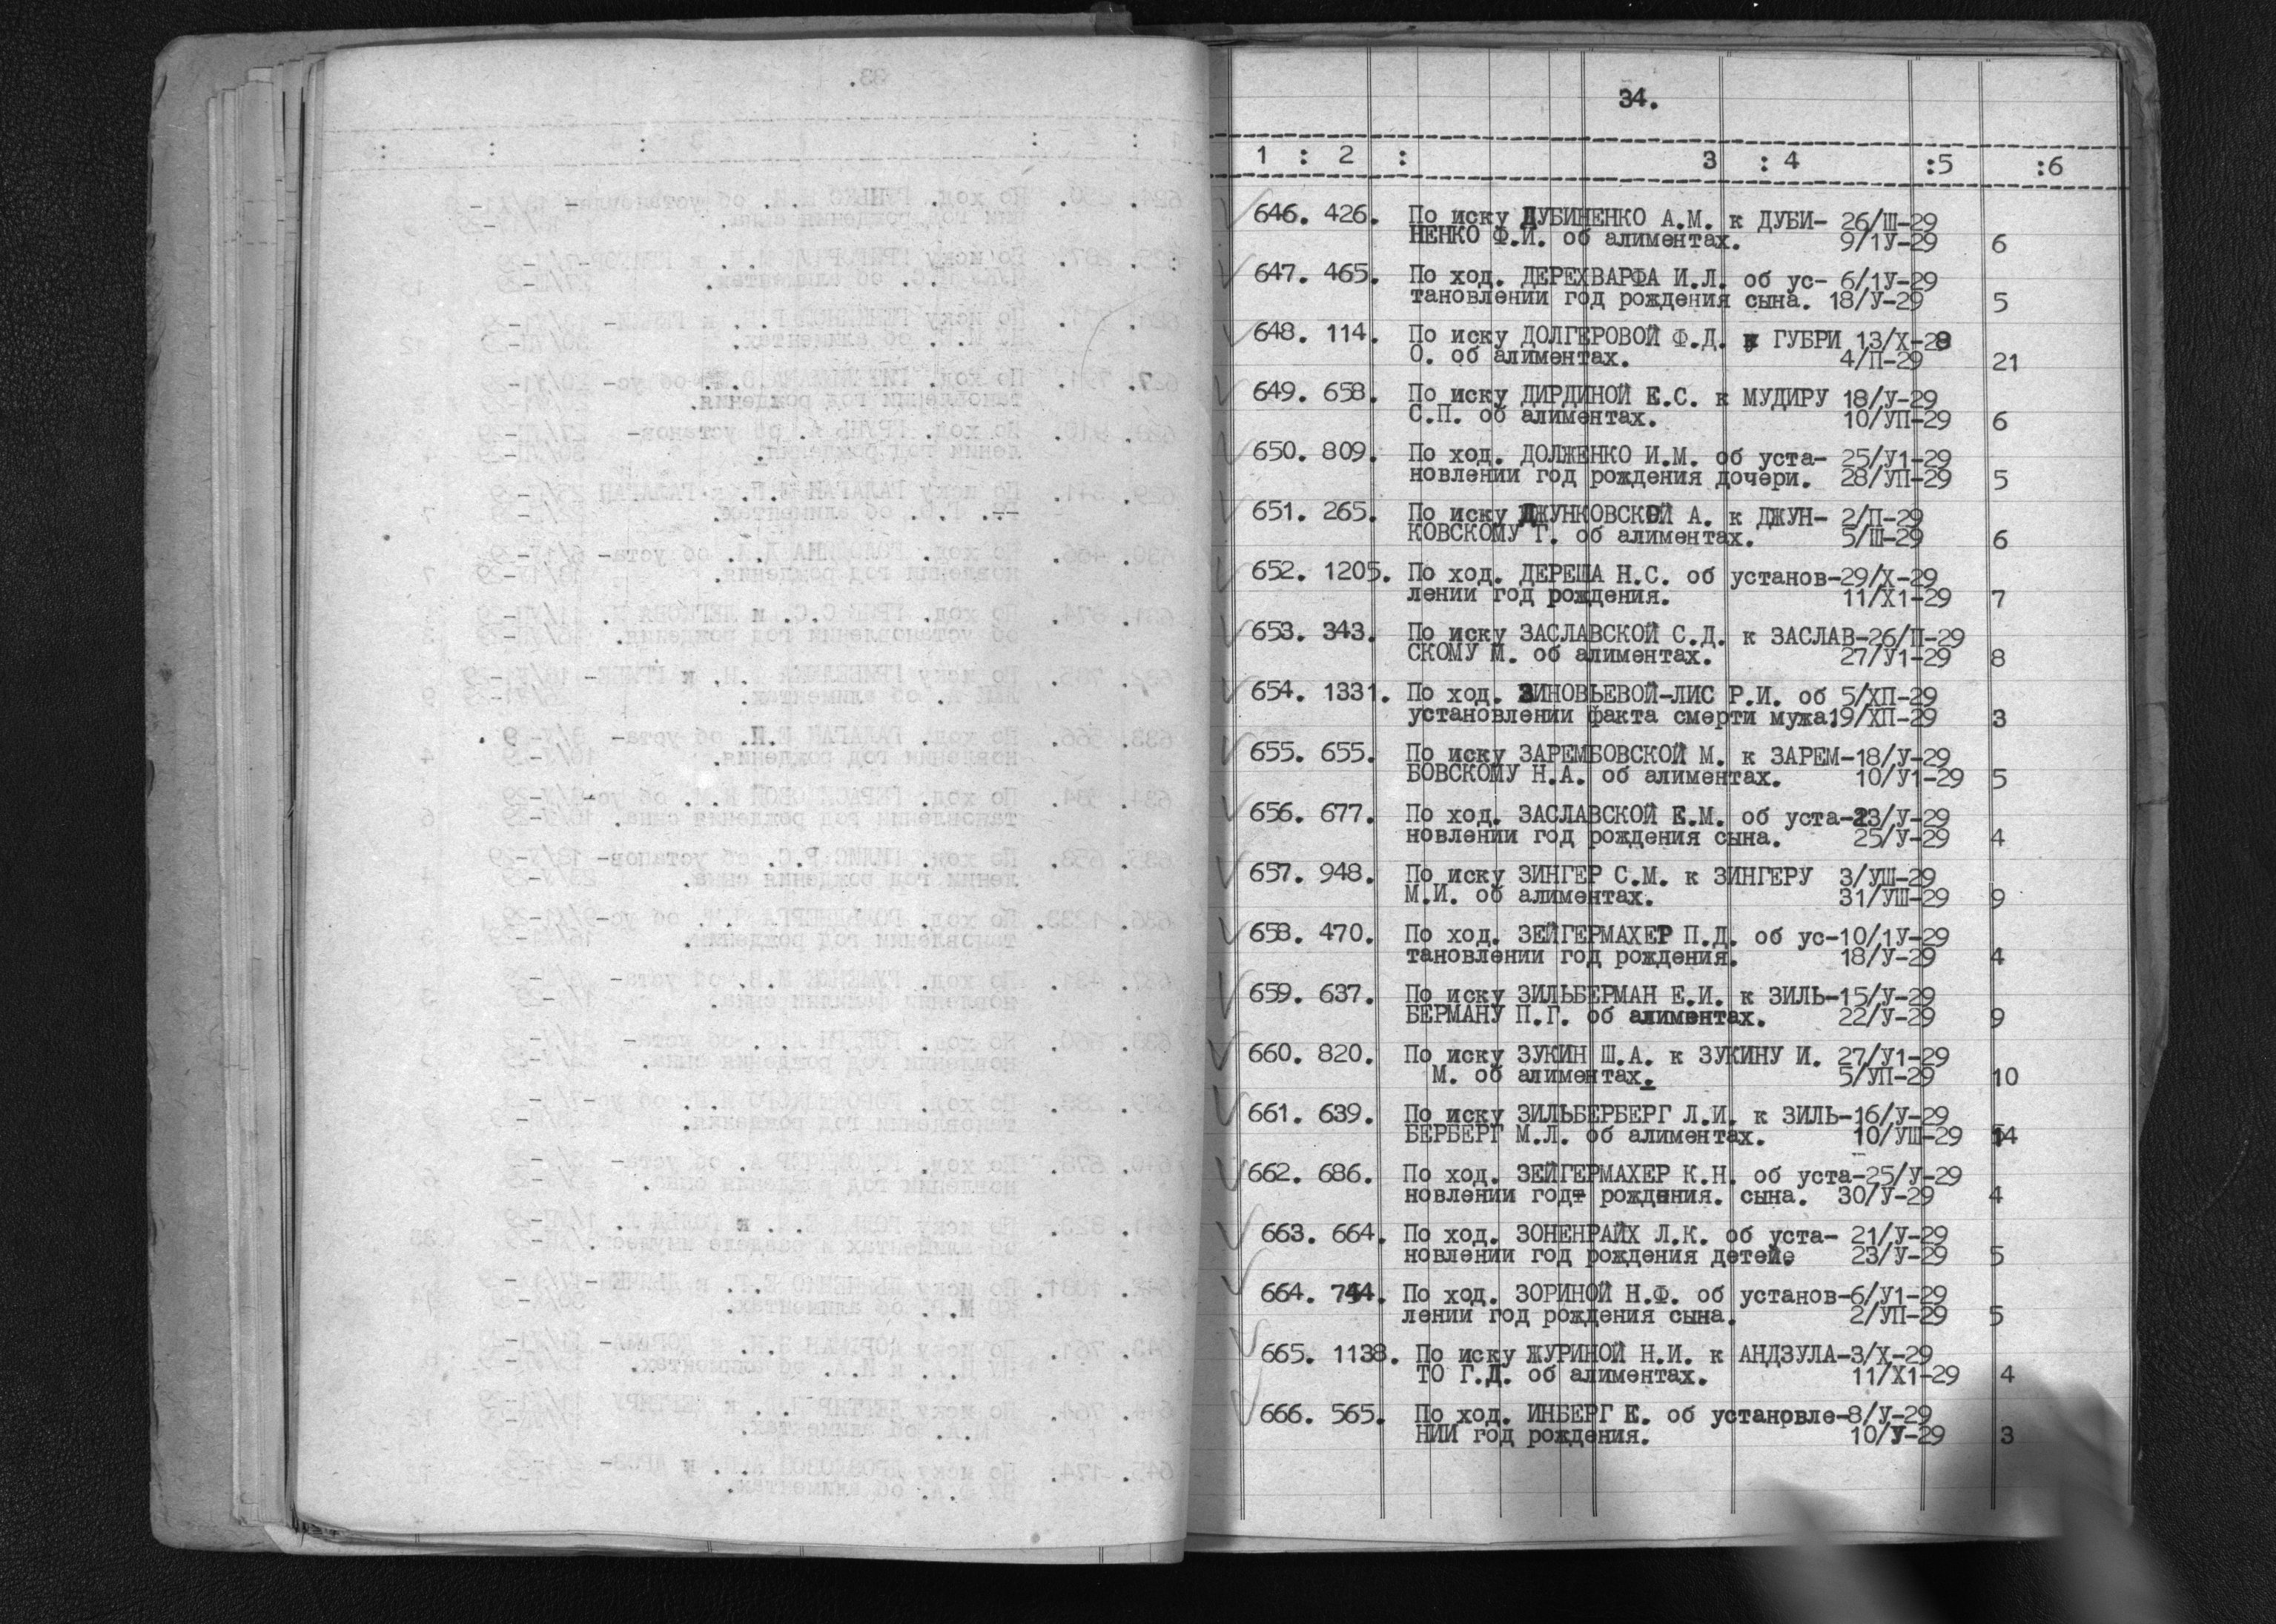 34.
1 : 2 : 3 : 4 :5 :6
646. 426. По иску ДУБИНЕНКО А.М. к ДУБИ- 26/Ш-29
НЕНКО Ф.И. об алиментах. 9/1У-29 6
647. 465. По ход. ДЕРЕХВАРФА И.Л. об ус- 6/1У-29
тановлении год рождения сына. 18/У-29 5
648. 114. По иску ДОЛГЕРОВОЙ Ф.Д. к ГУБРИ 13/Х-28
О. об алиментах. 4/П-29 21
649. 658. По иску ДИРДИНОЙ Е.С. к МУДИРУ 18/У-29
С.П. об алиментах. 10/УП-29 6
650. 809. По ход. ДОЛЖЕНКО И.М. об уста- 25/У1-29
новлении год рождения дочери. 28/УП-29 5
651. 265. По иску ДЖУНКОВСКОЙ А. к ДЖУН- 2/П-29
КОВСКОМУ Г. об алиментах. 5/Ш-29 6
652. 1205. По ход. ДЕРЕША Н.С. об установ-29/Х-29
лении год рождения. 11/Х1-29 7
653. 343. По иску ЗАСЛАВСКОЙ С.Д. к ЗАСЛАВ-26/П-29
СКОМУ М. об алиментах. 27/У1-29 8
654. 1331. По ход. ЗИНОВЬЕВОЙ-ЛИС Р.И. об 5/ХП-29
установлении факта смерти мужа.19/ХП-29 3
655. 655. По иску ЗАРЕМБОВСКОЙ М. к ЗАРЕМ-18/У-29
БОВСКОМУ Н.А. об алиментах. 10/У1-29 5
656. 677. По ход. ЗАСЛАВСКОЙ Е.М. об уста-23/У-29
новлении год рождения сына. 25/У-29 4
657. 948. По иску ЗИНГЕР С.М. к ЗИНГЕРУ 3/УШ-29
М.И. об алиментах. 31/УШ-29 9
658. 470. По ход. ЗЕЙГЕРМАХЕР П.Д. об ус-10/1У-29
тановлении год рождения. 18/У-29 4
659. 637. По иску ЗИЛЬБЕРМАН Е.И. к ЗИЛЬ-15/У-29
БЕРМАНУ П.Г. об алиментах. 22/У-29 9
660. 820. По иску ЗУКИН Ш.А. к ЗУКИНУ И. 27/У1-29
М. об алиментах. 5/УП-29 10
661. 639. По иску ЗИЛЬБЕРБЕРГ Л.И. к ЗИЛЬ-16/У-29
БЕРБЕРГ М.Л. об алиментах. 10/УШ-29 14
662. 686. По ход. ЗЕЙГЕРМАХЕР К.Н. об уста-25/У-29
новлении год рождения. сына. 30/У-29 4
663. 664. По ход. ЗОНЕНРАЙХ Л.К. об уста- 21/У-29
новлении год рождения детей. 23/У-29 5
664. 744. По ход. ЗОРИНОЙ Н.Ф. об установ-6/У1-29
лении год рождения сына. 2/УП-29 5
665. 1138. По иску ЖУРИНОЙ Н.И. к АНДЗУЛА-3/Х-29
ТО Г.Д. об алиментах. 11/Х1-29 4
666. 565. По ход. ИНБЕРГ Е. об установле-8/У-29
НИИ год рождения. 10/У-29 3